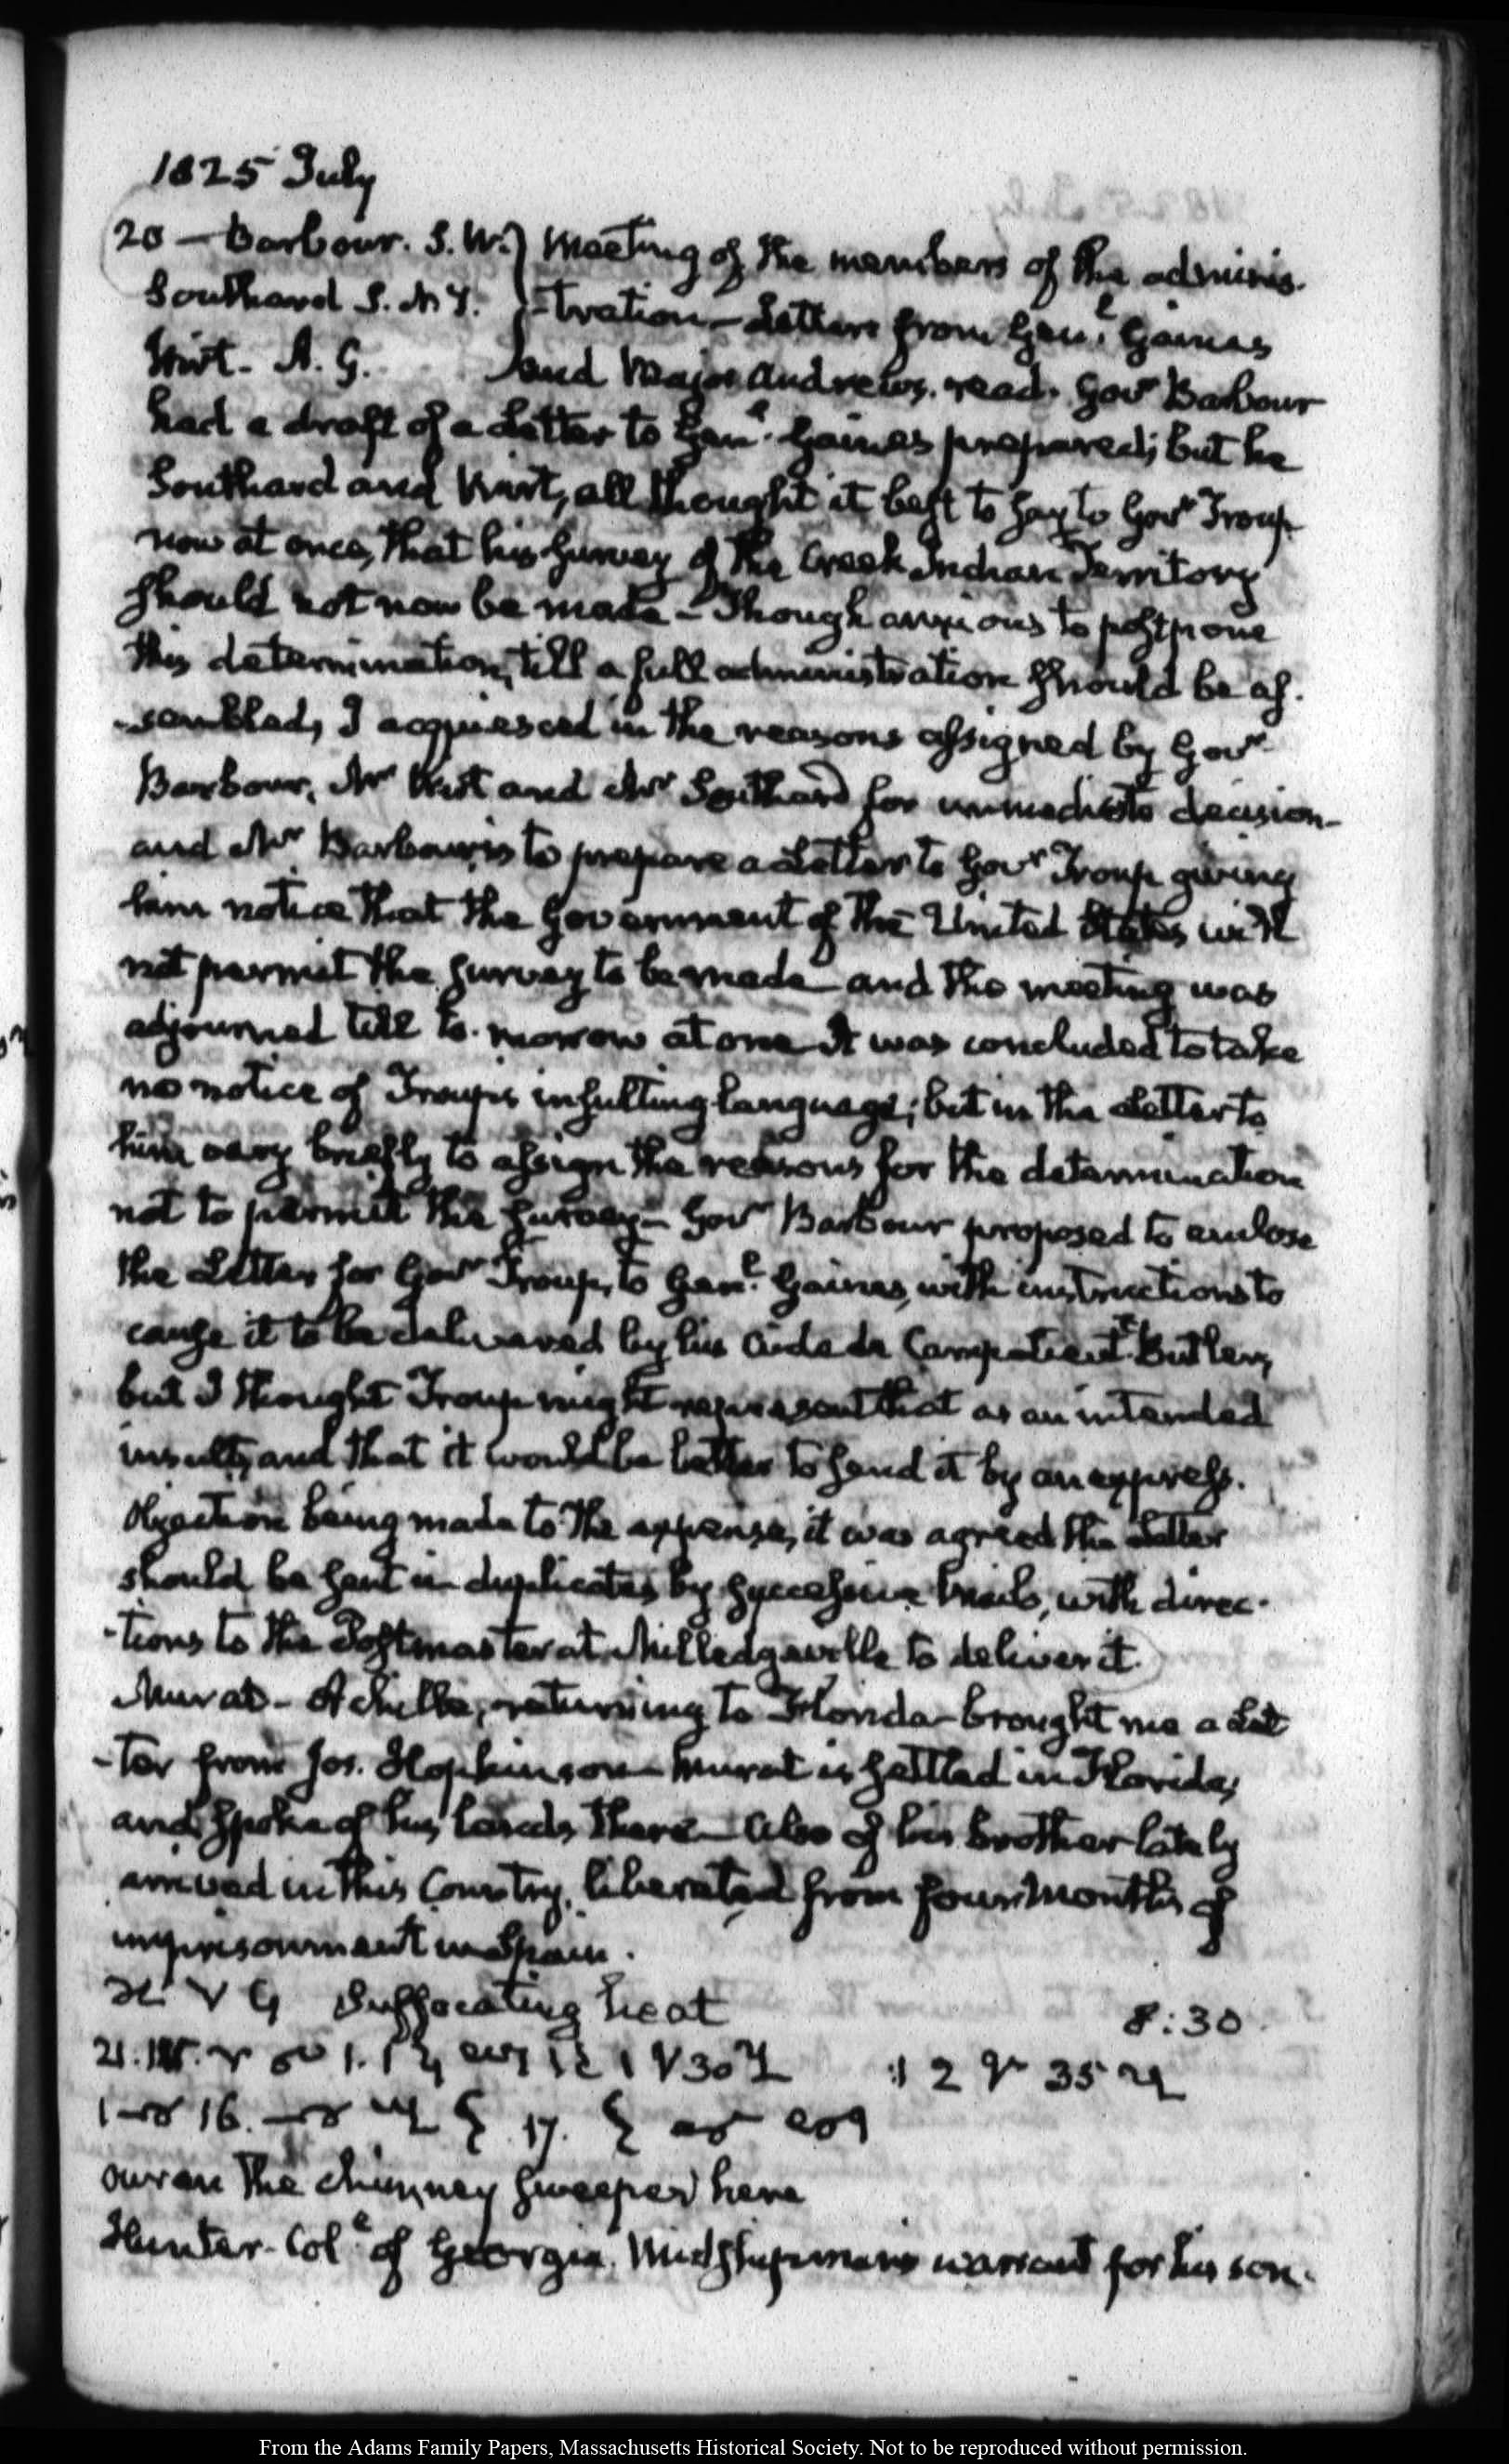 1825 July
20 — Barbour. S. W. } Meeting of the members of the adminis-
Southard S. N. Y. } -tration — Letters from Genl. Gaines
Wirt. A. G. } and Major Andrews. read. Govr Barbour
had a draft of a Letter to Genl. Gaines prepared; but he
Southard and Wirt, all thought it best to say to Govr Troup
now at once, that his survey of the Creek Indian Territory
should not now be made — Though anxious to postpone
this determination, till a full administration should be as-
-sembled, I acquiesced in the reasons assigned by Govr
Barbour, Mr Wirt and Mr Southard for immediate decision —
and Mr Barbour is to prepare a Letter to Govr Troup giving
him notice that the Government of the United States will
not permit the survey to be made — and the meeting was
adjourned till to-morrow at one — It was concluded to take
no notice of Troup's insulting language; but in the Letter to
him very briefly to assign the reasons for the determination
not to permit the survey — Govr Barbour proposed to enclose
the Letter for Govr Troup, to Genl. Gaines, with instructions to
cause it to be delivered by his Aid de Camp Lieutt Butler,
but I thought Troup might represent that as an intended
insult, and that it would be better to send it by an express.
Objection being made to the expense, it was agreed the Letter
should be sent in duplicates by successive Mails, with direc-
-tions to the Postmaster at Milledgeville to deliver it.
Murat — Achille, returning to Florida — brought me a Let
-ter from Jos. Hopkinson — Murat is settled in Florida,
and spoke of his lands there — also of his brother lately
arrived in this Country, liberated from four Months of
imprisonment in Spain.
Suffocating heat 8:30.
21. 30 2 35
16. 17.
the chimney sweeper here
Hunter. Coll. of Georgia. Midshipman's warrant for his son.